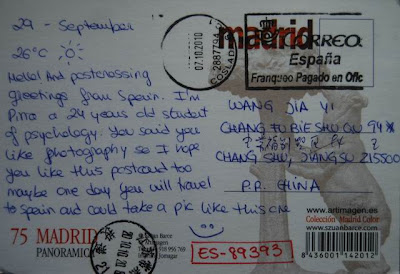 29 - September
26°C
Hello! And postcrossing
greetings from Spain. I'm
Pina a 24 years old student
of psychology. You said you
like photography so I hope
you like this postcard too
maybe one day you will travel
to Spain and could take a pic like this one
madrid
07.10.2010
CORREOS
España
Franqueo Pagado en Ofic
WANG JIA YI
CHANG FU BIESHU QU
CHANG SHU, JIANGSU 215500
P.R. CHINA
www.artimagen.es
Colección: Madrid Color
www.szuanbarce.com
8 436001 142012
75 MADRID
PANORAMICA
ES-89393